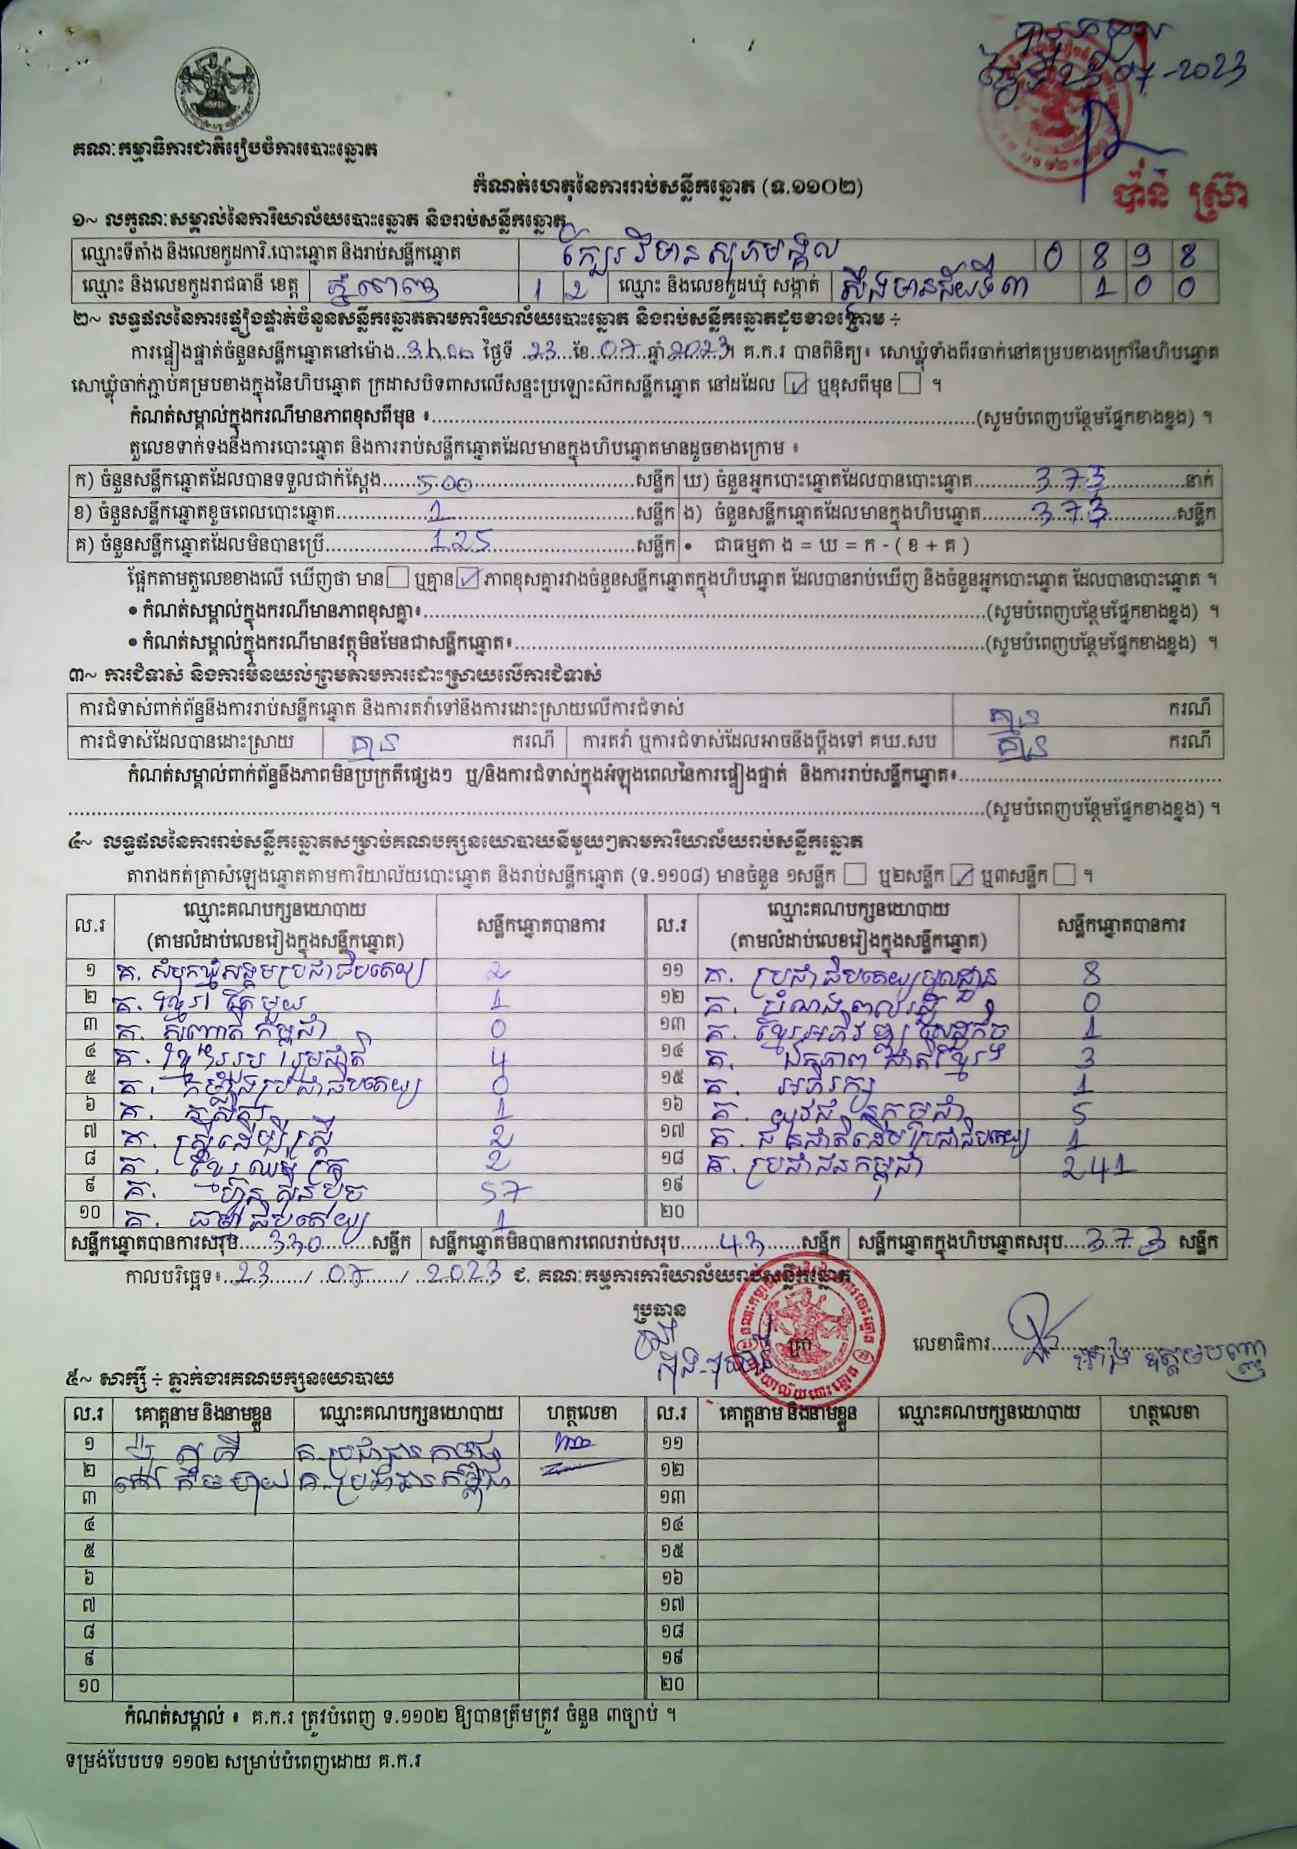 07-2023
គណៈកម្មាធិការជាតិរៀបចំការបោះឆ្នោត
កំណត់ហេតុនៃការរាប់សន្លឹកឆ្នោត (ទ.១១០២)
ប៉ាន់ ស្រ៊ា
១~ លក្ខណៈសម្គាល់នៃការិយាល័យបោះឆ្នោត និងរាប់សន្លឹកឆ្នោត
ឈ្មោះទីតាំង និងលេខកូដការិ.បោះឆ្នោត និងរាប់សន្លឹកឆ្នោត ក្បែរវិមានសុភមង្គល 0 8 9 8
ឈ្មោះ និងលេខកូដរាជធានី ខេត្ត ភ្នំពេញ 1 2 ឈ្មោះ និងលេខកូដឃុំ សង្កាត់ ស្ទឹងមានជ័យទី៣ 1 0 0
២~ លទ្ធផលនៃការផ្ទៀងផ្ទាត់ចំនួនសន្លឹកឆ្នោតតាមការិយាល័យបោះឆ្នោត និងរាប់សន្លឹកឆ្នោតដូចខាងក្រោម ÷
ការផ្ទៀងផ្ទាត់ចំនួនសន្លឹកឆ្នោតនៅម៉ោង ថ្ងៃទី 23 ខែ 07 ឆ្នាំ 2023 ។ គ.ក.រ បានពិនិត្យ៖ សោឃ្លុំទាំងពីរចាក់នៅគម្របខាងក្រៅនៃហិបឆ្នោត
សោឃ្លុំចាក់ភ្ជាប់គម្របខាងក្នុងនៃហិបឆ្នោត ក្រដាសបិទពាសលើសន្ទះប្រឡោះស៊កសន្លឹកឆ្នោត នៅដដែល ☑ ឬខុសពីមុន ☐ ។
កំណត់សម្គាល់ក្នុងករណីមានភាពខុសពីមុន ៖ (សូមបំពេញបន្ថែមផ្នែកខាងខ្នង) ។
តួលេខទាក់ទងនឹងការបោះឆ្នោត និងការរាប់សន្លឹកឆ្នោតដែលមានក្នុងហិបឆ្នោតមានដូចខាងក្រោម ៖
ក) ចំនួនសន្លឹកឆ្នោតដែលបានទទួលជាក់ស្តែង 500 សន្លឹក ឃ) ចំនួនអ្នកបោះឆ្នោតដែលបានបោះឆ្នោត 373 នាក់
ខ) ចំនួនសន្លឹកឆ្នោតខូចពេលបោះឆ្នោត 1 សន្លឹក ង) ចំនួនសន្លឹកឆ្នោតដែលមានក្នុងហិបឆ្នោត 373 សន្លឹក
គ) ចំនួនសន្លឹកឆ្នោតដែលមិនបានប្រើ 125 សន្លឹក • ជាធម្មតា ង = ឃ = ក - ( ខ + គ )
ផ្អែកតាមតួលេខខាងលើ ឃើញថា មាន ☐ ឬគ្មាន ☑ ភាពខុសគ្នារវាងចំនួនសន្លឹកឆ្នោតក្នុងហិបឆ្នោត ដែលបានរាប់ឃើញ និងចំនួនអ្នកបោះឆ្នោត ដែលបានបោះឆ្នោត ។
• កំណត់សម្គាល់ក្នុងករណីមានភាពខុសគ្នា៖ (សូមបំពេញបន្ថែមផ្នែកខាងខ្នង) ។
• កំណត់សម្គាល់ក្នុងករណីមានវត្ថុមិនមែនជាសន្លឹកឆ្នោត៖ (សូមបំពេញបន្ថែមផ្នែកខាងខ្នង) ។
៣~ ការជំទាស់ និងការមិនយល់ព្រមតាមការដោះស្រាយលើការជំទាស់
ការជំទាស់ពាក់ព័ន្ធនឹងការរាប់សន្លឹកឆ្នោត និងការតវ៉ាទៅនឹងការដោះស្រាយលើការជំទាស់ គ្មាន ករណី
ការជំទាស់ដែលបានដោះស្រាយ គ្មាន ករណី ការតវ៉ា ឬការជំទាស់ដែលអាចនឹងប្តឹងទៅ គឃ.សប គ្មាន ករណី
កំណត់សម្គាល់ពាក់ព័ន្ធនឹងភាពមិនប្រក្រតីផ្សេងៗ ឬ/និងការជំទាស់ក្នុងអំឡុងពេលនៃការផ្ទៀងផ្ទាត់ និងការរាប់សន្លឹកឆ្នោត៖
(សូមបំពេញបន្ថែមផ្នែកខាងខ្នង) ។
៤~ លទ្ធផលនៃការរាប់សន្លឹកឆ្នោតសម្រាប់គណបក្សនយោបាយនីមួយៗតាមការិយាល័យរាប់សន្លឹកឆ្នោត
តារាងកត់ត្រាសំឡេងឆ្នោតតាមការិយាល័យបោះឆ្នោត និងរាប់សន្លឹកឆ្នោត (ទ.១១០៨) មានចំនួន ១សន្លឹក ☐ ឬ២សន្លឹក ☑ ឬ៣សន្លឹក ☐ ។
ល.រ ឈ្មោះគណបក្សនយោបាយ (តាមលំដាប់លេខរៀងក្នុងសន្លឹកឆ្នោត) សន្លឹកឆ្នោតបានការ ល.រ ឈ្មោះគណបក្សនយោបាយ (តាមលំដាប់លេខរៀងក្នុងសន្លឹកឆ្នោត) សន្លឹកឆ្នោតបានការ
១ គ. សំបុកឃ្មុំសង្គមប្រជាធិបតេយ្យ 2 ១១ គ. ប្រជាធិបតេយ្យមូលដ្ឋាន 8
២ គ. ខ្មែរតែមួយ 1 ១២ គ. បំណងពលរដ្ឋ 0
៣ គ. សញ្ជាតិកម្ពុជា 0 ១៣ គ. ខ្មែរអភិវឌ្ឍន៍សេដ្ឋកិច្ច 1
៤ គ. ខ្មែររួបរួមជាតិ 4 ១៤ គ. ឯកភាពជាតិខ្មែរ 3
៥ គ. កម្លាំងប្រជាធិបតេយ្យ 0 ១៥ គ. អភិរក្ស 1
៦ គ. កសិករ 1 ១៦ គ. យុវជនកម្ពុជា 5
៧ គ. ស្ត្រីដើម្បីស្ត្រី 2 ១៧ គ. ជនជាតិដើមប្រជាធិបតេយ្យ 1
៨ គ. ខ្មែរឈប់ក្រ 2 ១៨ គ. ប្រជាជនកម្ពុជា 241
៩ គ. ហ្វ៊ុនស៊ិនប៉ិច 57 ១៩
១០ គ. ធម្មាធិបតេយ្យ 1 ២០
សន្លឹកឆ្នោតបានការសរុប 330 សន្លឹក សន្លឹកឆ្នោតមិនបានការពេលរាប់សរុប 43 សន្លឹក សន្លឹកឆ្នោតក្នុងហិបឆ្នោតសរុប 373 សន្លឹក
កាលបរិច្ឆេទ៖ 23 / 07 / 2023 ជ. គណៈកម្មការការិយាល័យរាប់សន្លឹកឆ្នោត
ប្រធាន ត្រា លេខាធិការ
៥~ សាក្សី ÷ ភ្នាក់ងារគណបក្សនយោបាយ
ល.រ គោត្តនាម និងនាមខ្លួន ឈ្មោះគណបក្សនយោបាយ ហត្ថលេខា ល.រ គោត្តនាម និងនាមខ្លួន ឈ្មោះគណបក្សនយោបាយ ហត្ថលេខា
១ គ.ប្រជាជនកម្ពុជា ១១
២ គ.ប្រជាជនកម្ពុជា ១២
៣ ១៣
៤ ១៤
៥ ១៥
៦ ១៦
៧ ១៧
៨ ១៨
៩ ១៩
១០ ២០
កំណត់សម្គាល់ ៖ គ.ក.រ ត្រូវបំពេញ ទ.១១០២ ឱ្យបានត្រឹមត្រូវ ចំនួន ៣ច្បាប់ ។
ទម្រង់បែបបទ ១១០២ សម្រាប់បំពេញដោយ គ.ក.រ